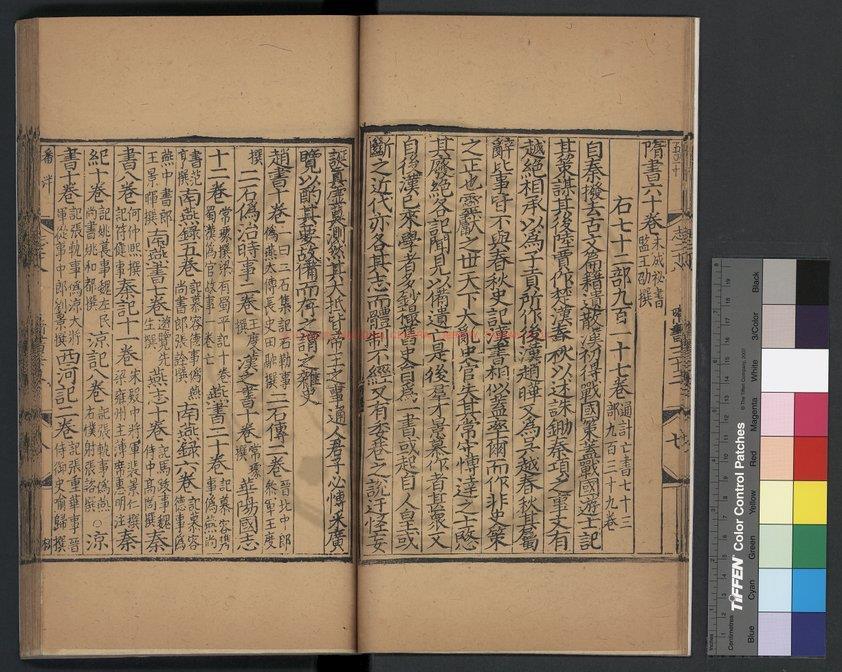 隋書六十卷未成秘書監王劭撰
右七十二部九百一十七卷通計亡書七十三部九百三十九卷
自秦撥去古文篇籍遺散漢初得戰國策蓋戰國遊士記
其策謀其後陸賈作楚漢春秋以述誅鋤秦項之事又有
越絕相承以為子貢所作後漢趙曄又為吳越春秋其屬
辭比事皆不與春秋史記漢書相似蓋率爾而作非史策
之正也靈獻之世天下大亂史官失其常守博達之士愍
其廢絕各記聞見以備遺亡是後羣才景慕作者甚衆又
自後漢已來學者多鈔撮舊史自為一書或起自人皇或
斷之近代亦各其志而體制不經又有委巷之說迂怪妄
誕真虛莫測然其大抵皆帝王之事通人君子必博采廣
覽以酌其要故備而存之謂之雜史
趙書十卷一曰二石集記石勒事偽燕太傅長史田融撰二石傳二卷晉北中郎參軍王度
撰二石偽治時事二卷王度撰漢之書十卷常璩撰華陽國志
十二卷常璩撰梁有蜀平記十卷蜀漢偽官故事一卷亡燕書二十卷記慕容雋事偽燕尚
書范亨撰南燕錄五卷記慕容德事偽燕尚書郎張詮撰南燕錄六卷記慕容德事偽
燕中書郎王景暉撰南燕書七卷遊覽先生撰燕志十卷記馮跋事魏侍中高閭撰秦
書八卷何仲熙撰記苻健事秦記十一卷宋殿中將軍裴景仁撰梁雍州主簿席惠明注秦
紀十卷記姚萇事魏左民尚書姚和都撰涼記八卷記張軌事偽燕右僕射張諮撰○涼
書十卷記張軌事偽涼大將軍從事中郎劉景撰西河記二卷記張重華事晉侍御史喻歸撰
TIFFEN Color Control Patches
© The Tiffen Company, 2007
Centimetres
Inches
Blue Cyan Green Yellow Red Magenta White 3/Color Black